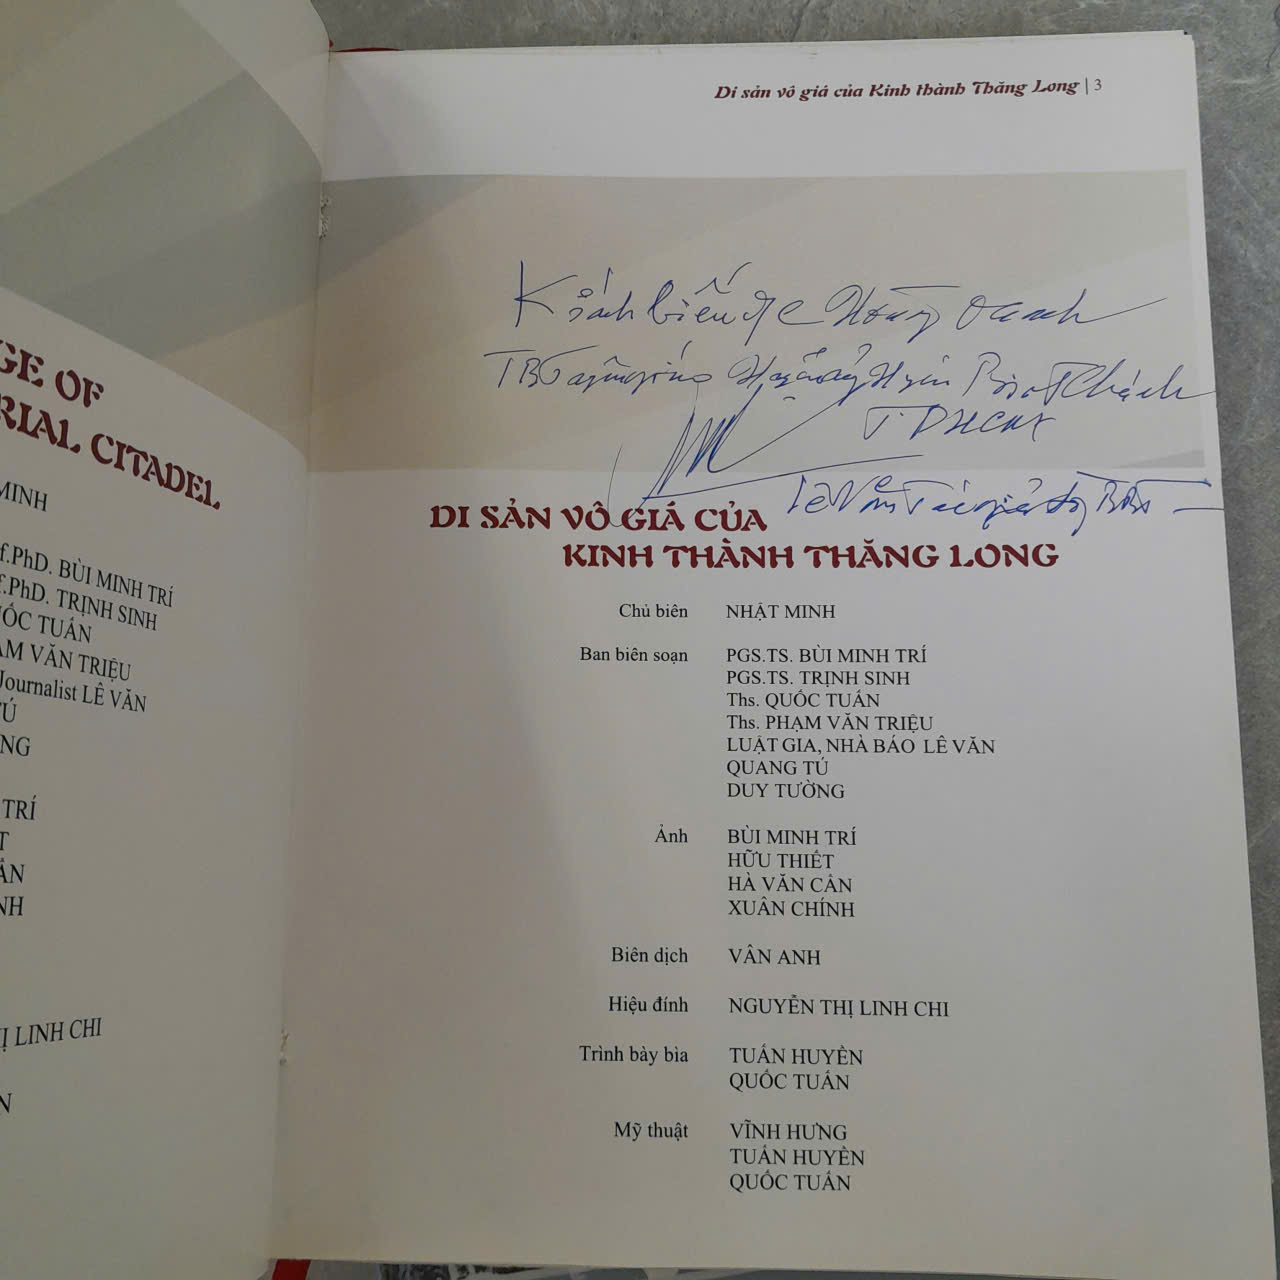 GE OF
RIAL CITADEL
MINH
f.PhD. BÙI MINH TRÍ
f.PhD. TRỊNH SINH
UỐC TUẤN
ẠM VĂN TRIỆU
Journalist LÊ VĂN
TÚ
NG
TRÍ
T
ẤN
NH
Ị LINH CHI
N
Di sản vô giá của Kinh thành Thăng Long | 3
Kính biếu Hồng Oanh
Khánh
Lê Văn
DI SẢN VÔ GIÁ CỦA
KINH THÀNH THĂNG LONG
Chủ biên NHẬT MINH
Ban biên soạn PGS.TS. BÙI MINH TRÍ
PGS.TS. TRỊNH SINH
Ths. QUỐC TUẤN
Ths. PHẠM VĂN TRIỆU
LUẬT GIA, NHÀ BÁO LÊ VĂN
QUANG TÚ
DUY TƯỜNG
Ảnh BÙI MINH TRÍ
HỮU THIẾT
HÀ VĂN CẨN
XUÂN CHÍNH
Biên dịch VÂN ANH
Hiệu đính NGUYỄN THỊ LINH CHI
Trình bày bìa TUẤN HUYỀN
QUỐC TUẤN
Mỹ thuật VĨNH HƯNG
TUẤN HUYỀN
QUỐC TUẤN